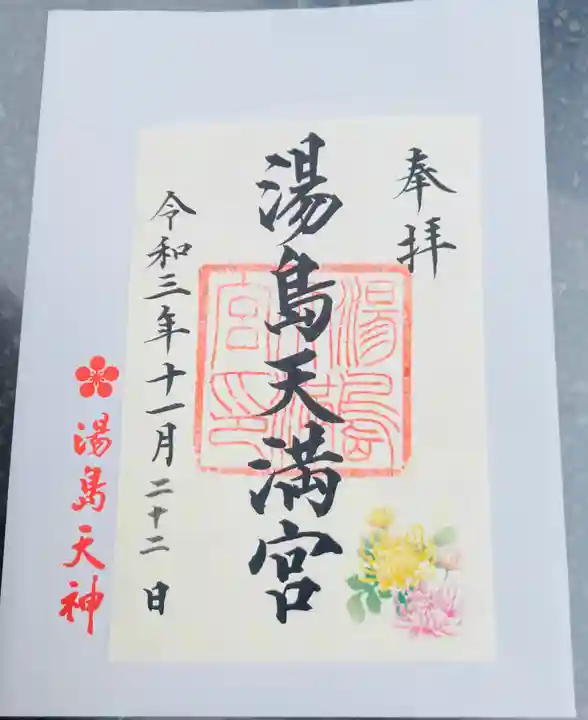 奉拝
湯島天満宮
湯島天満宮印
令和三年十一月二十二日
湯島天神